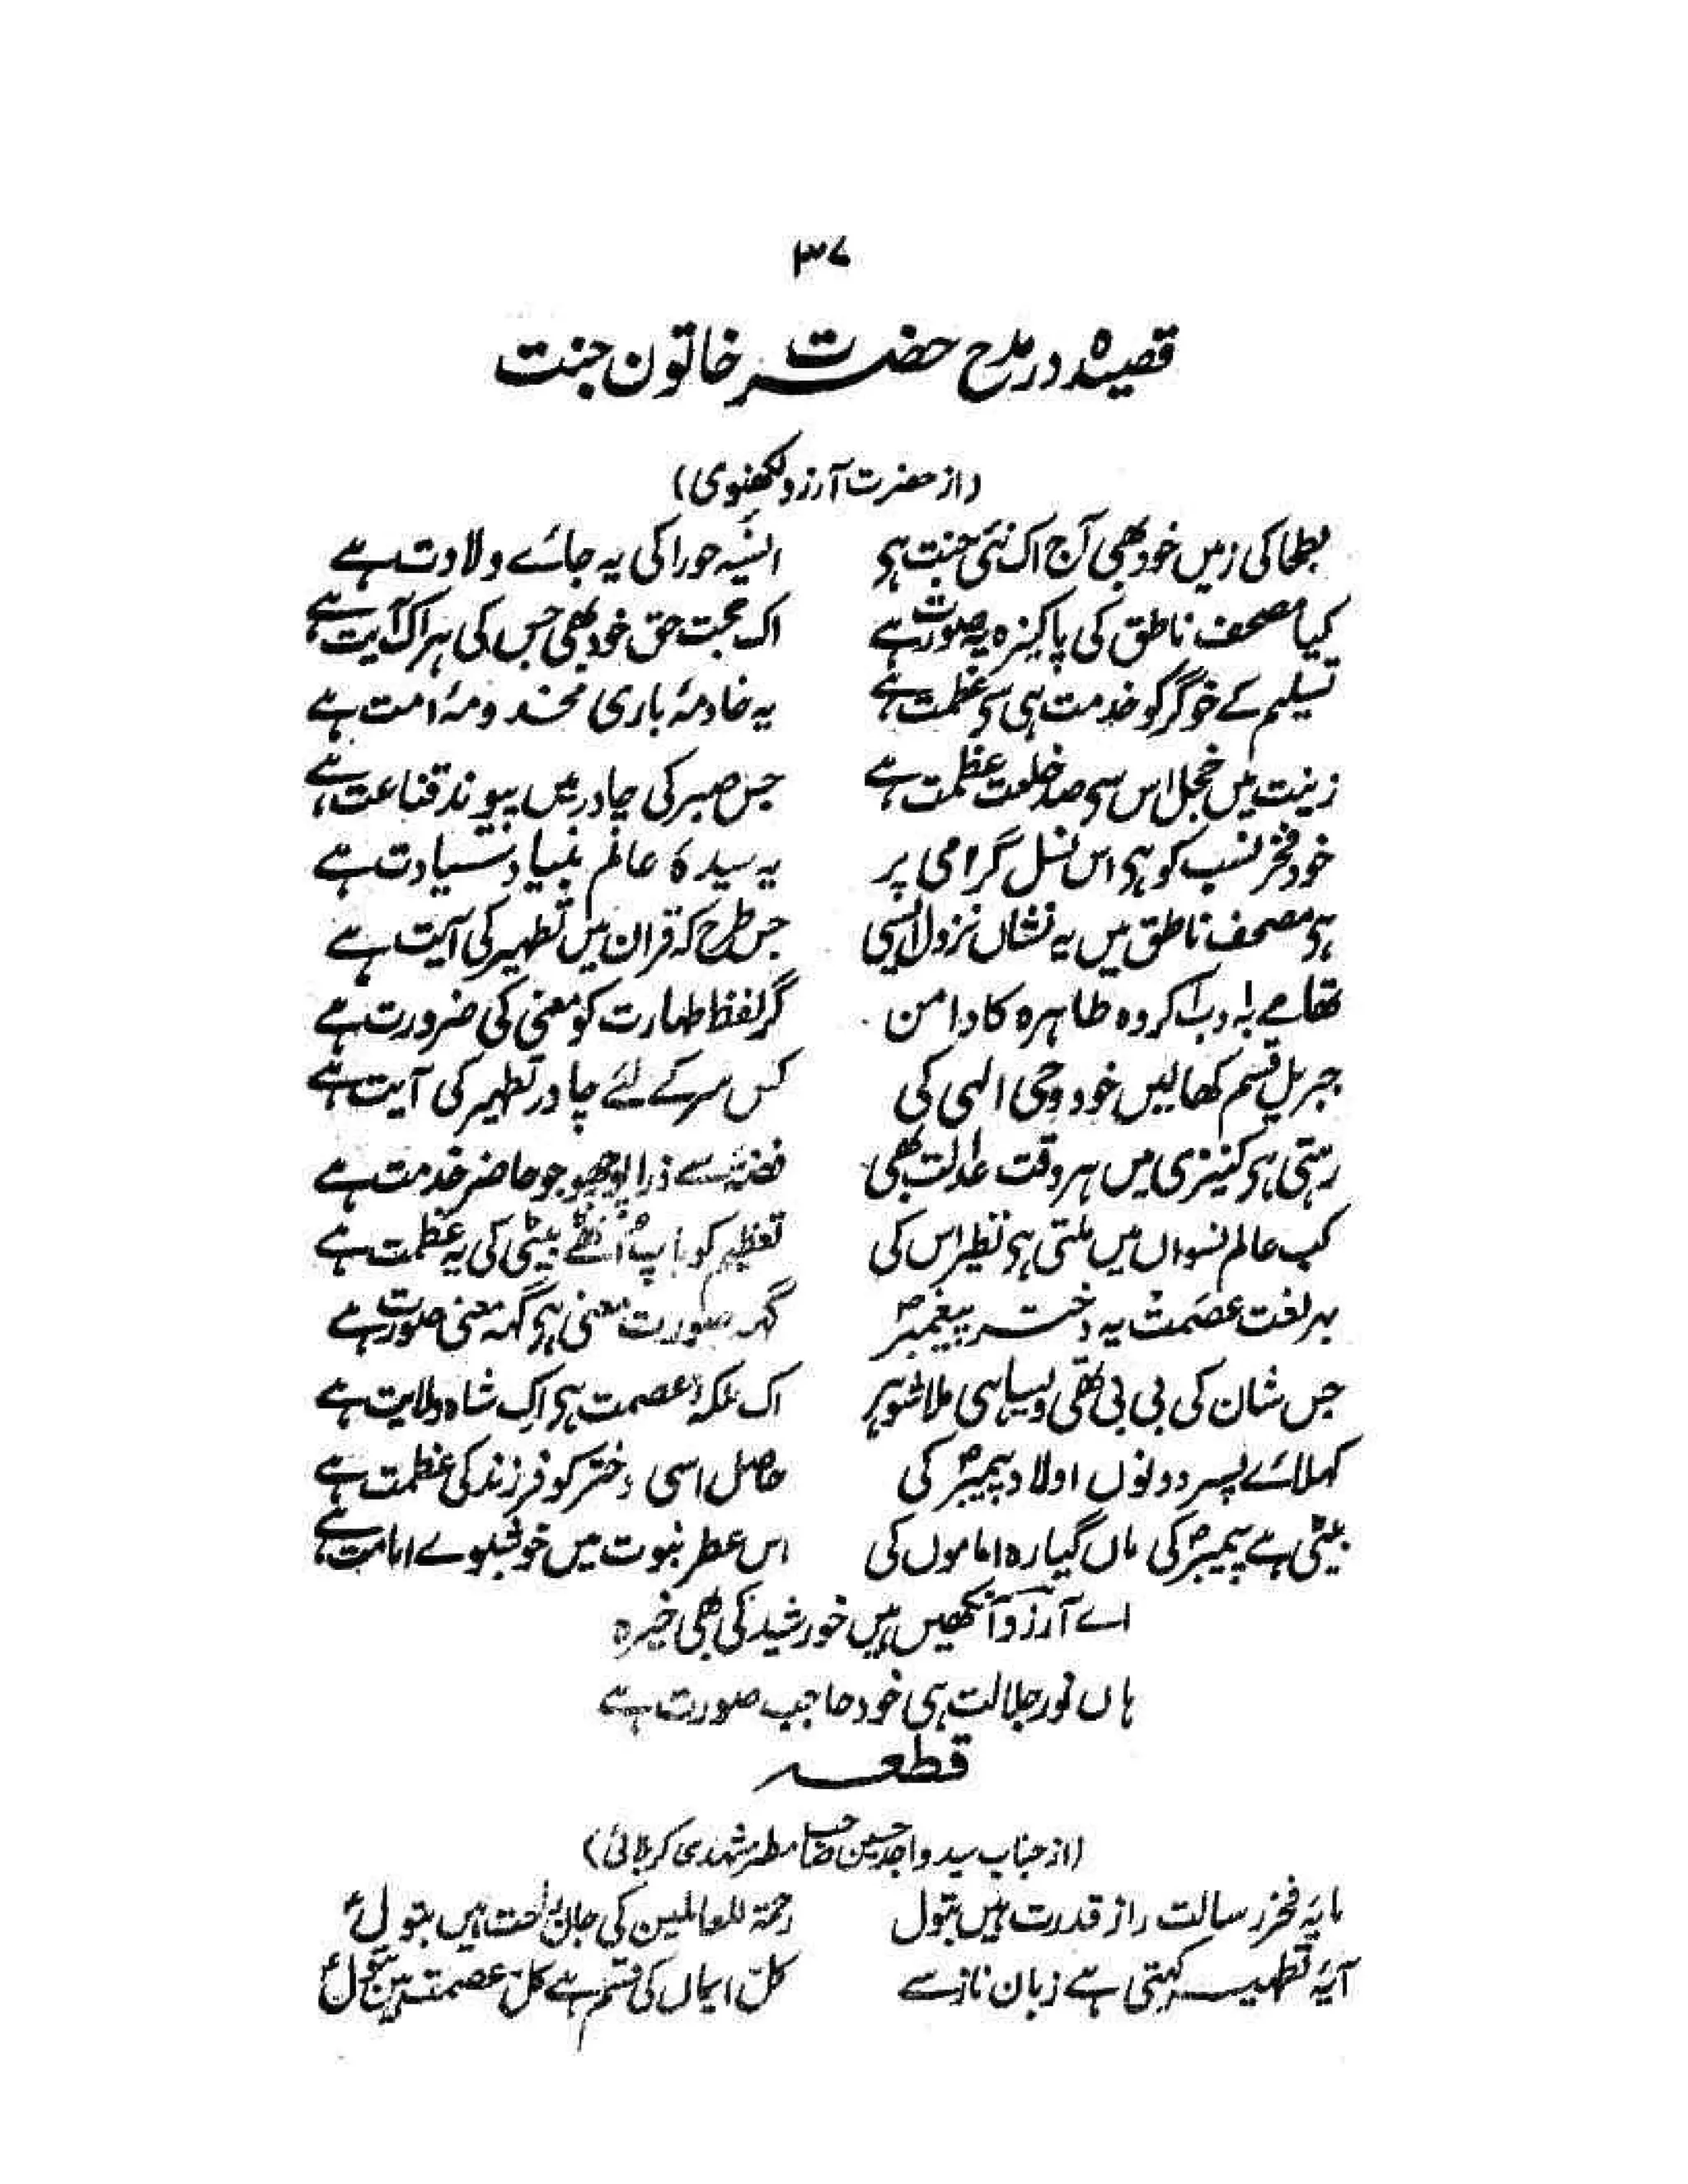 ۳۷
قصیدہ در مدح حضرت خاتون جنت
(از حضرت آرزو لکھنوی)
بطحا کی زمیں خود بھی آج اک نئی جنت ہو انسیہ حورا کی یہ جائے ولادت ہے
کیا مصحف ناطق کی پاکیزہ یہ صورت ہے اک حجت حق خود بھی جس کی ہر اک آیت ہے
تسلیم کے خوگر کو خدمت ہی سے عظمت ہے یہ خادمۂ باری مخدومۂ امت ہے
زینت میں خجل اس سے صد خلعت عظمت ہے جس صبر کی چادر میں پیوند قناعت ہے
خود فخر نسب کو ہے اس نسل گرامی پر یہ سیدہ عالم بنیاد سیادت ہے
ہے مصحف ناطق میں یہ نشاں نزول ایسی جس طرح کہ قران میں تطہیر کی آیت ہے
تھامے با دب آکر وہ طاہرہ کا دامن گر لفظ طہارت کو معنی کی ضرورت ہے
جبریل قسم کھالیں خود وحی الہی کی کس سر کے لئے چادر تطہیر کی آیت ہے
رہتی ہے کنیزی میں ہر وقت عدالت بھی فضہؑ سے ذرا پوچھو جو حاضر خدمت ہے
کب عالم نسواں میں ملتی ہے نظیر اس کی تعظیم کو باپ اُٹھے بیٹی کی یہ عظمت ہے
بہر لغت عصمت یہ دختر پیغمبرؐ گہہ صورت معنی ہے گہہ معنی صورت ہے
جس شان کی بی بی تھی ویسا ہی ملا شوہر اک ملکۂ عصمت ہے اک شاہ ولایت ہے
کہلائے پسر دونوں اولاد پیمبرؐ کی حاصل اسی دختر کو فرزند کی عظمت ہے
بیٹی ہے پیمبرؐ کی ماں گیارہ اماموں کی اس عطر نبوت میں خوشبوے امامت ہے
اے آرزو آنکھیں ہیں خورشید کی بھی خیرہ
ہاں نور جلالت ہی خود حاجب صورت ہے
قطعہ
(از جناب سید واجد حسین صاحب مطر مشہدی کربلائی)
مایۂ فخر رسالت راز قدرت ہیں بتول رحمۃ للعالمین کی جان راحت ہیں بتولؑ
آیۂ تطہیر کہتی ہے زبان ناز سے کلّ ایماں کی قسم ہے کلّ عصمت ہیں بتولؑ